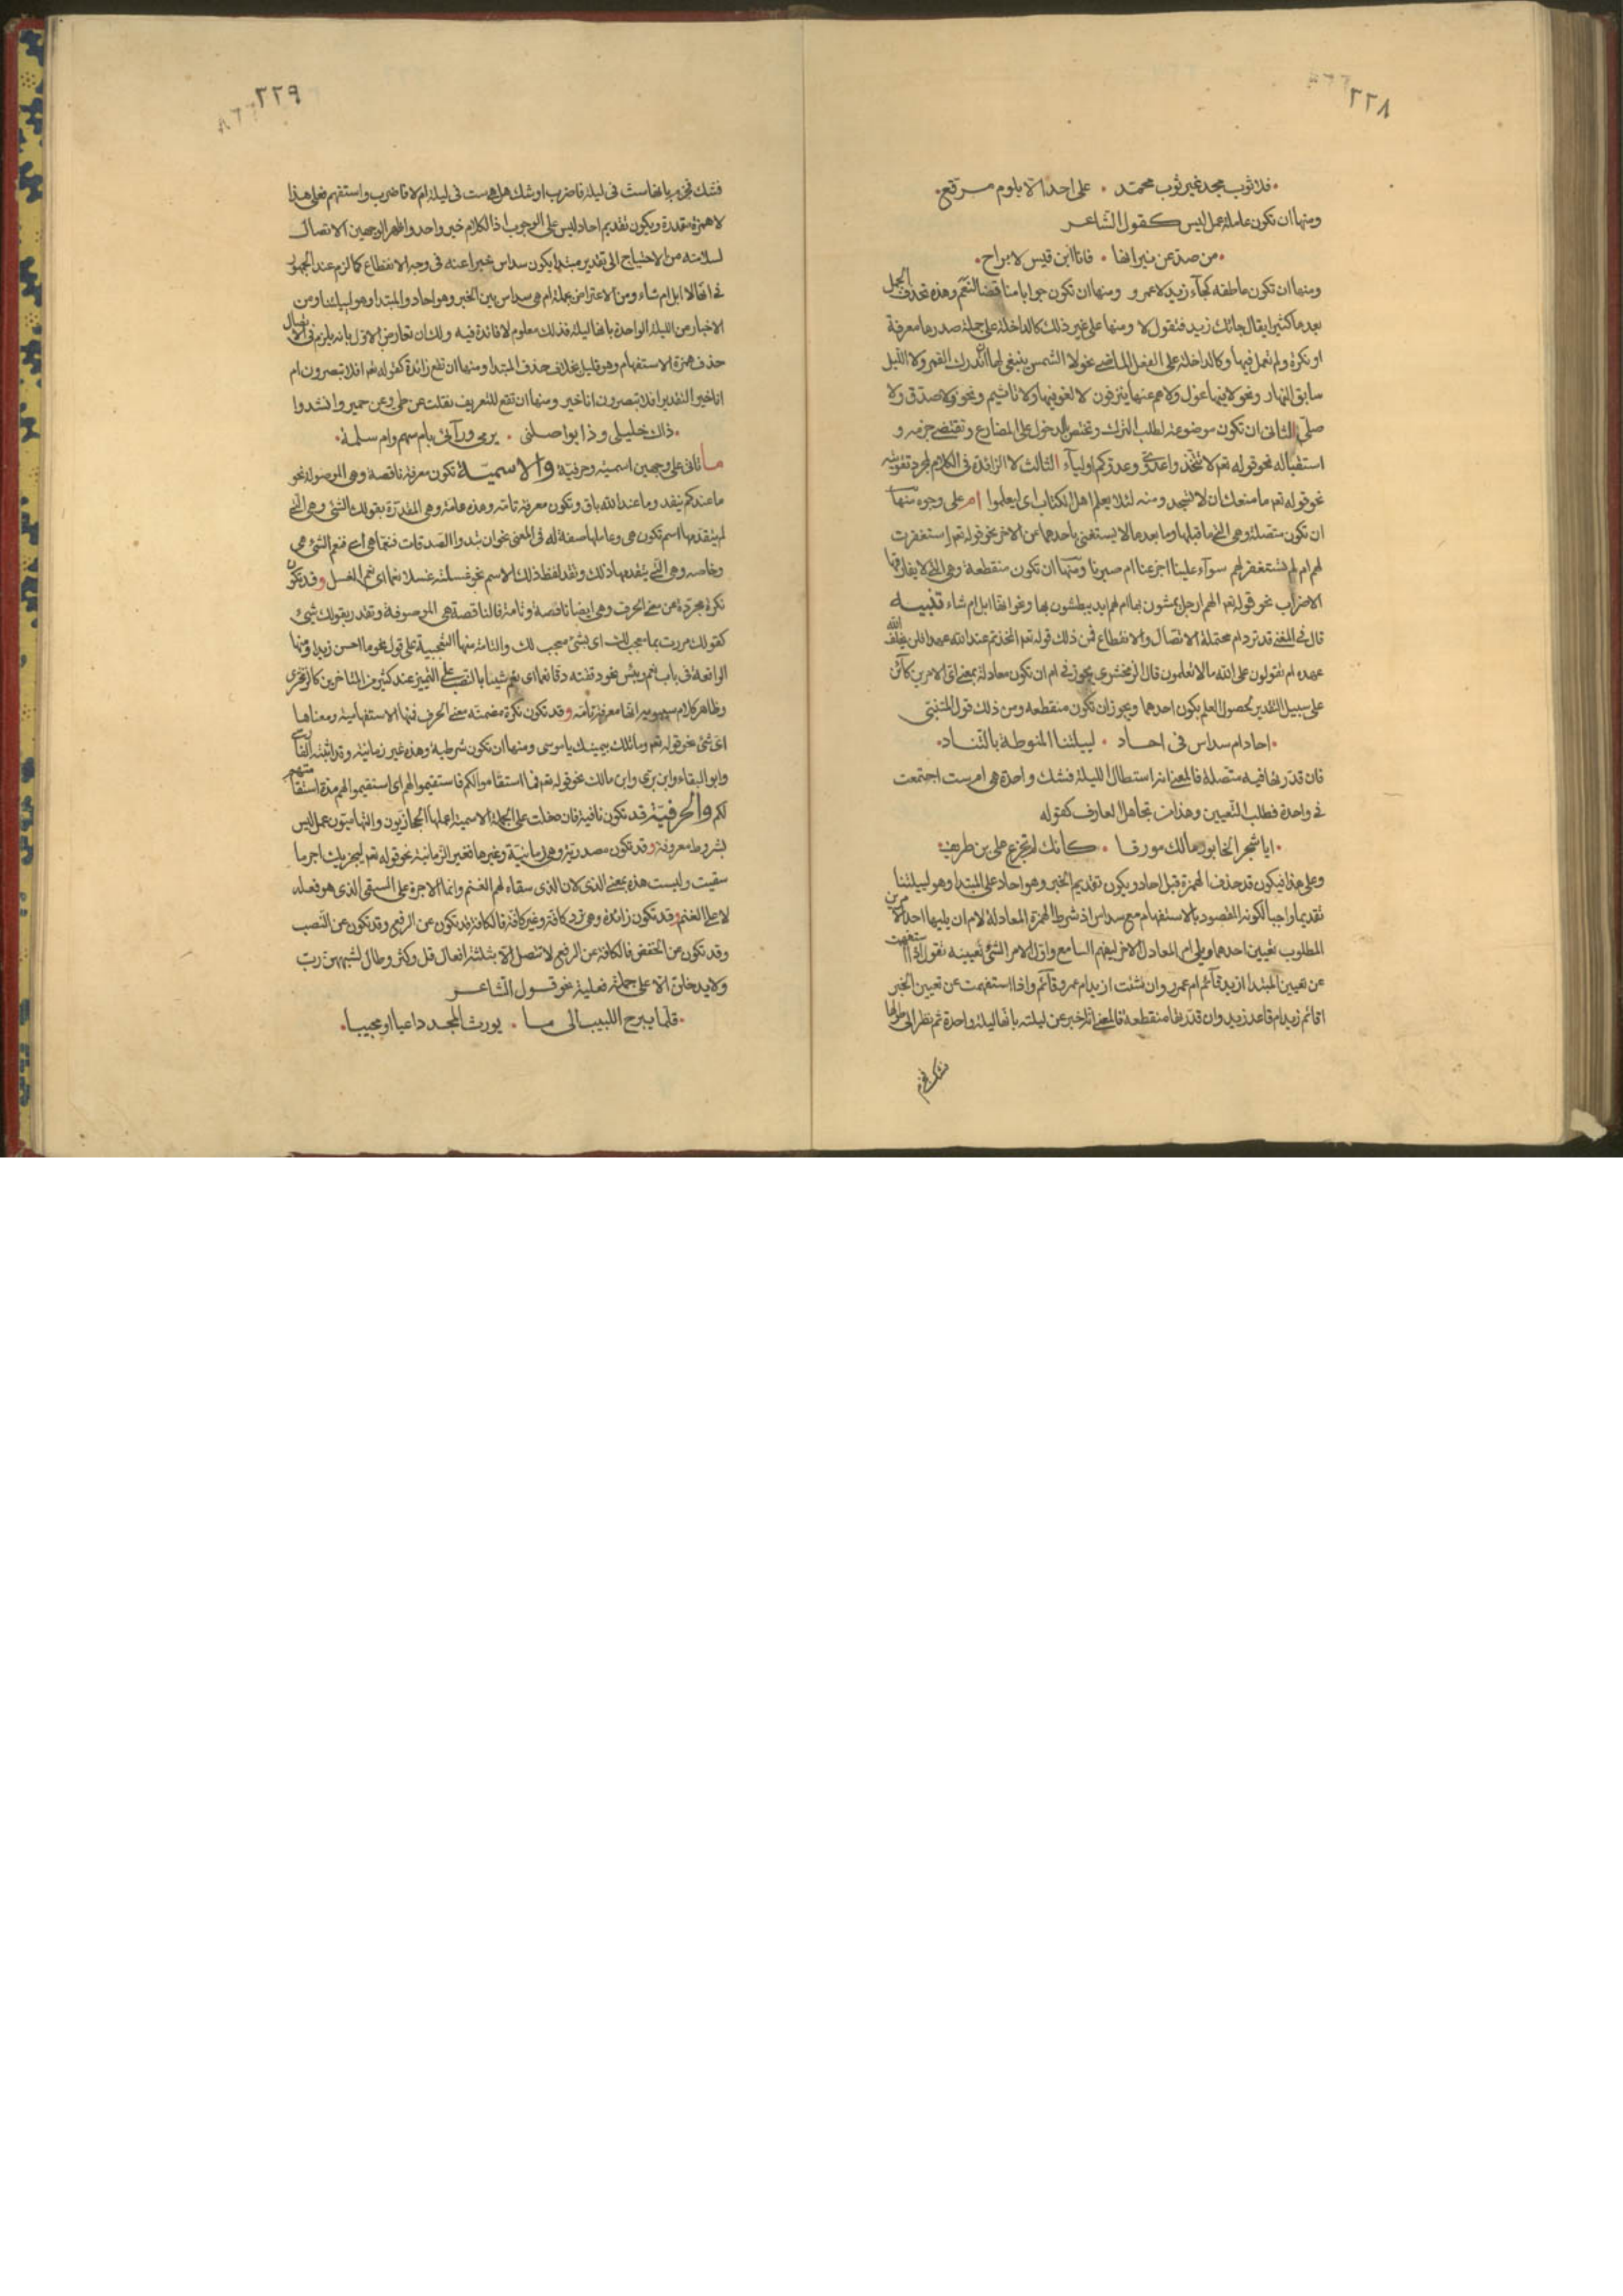 ٢٢٨
فلا ثوب مجد غير ثوب محمد . على احد الا بلوم مرقع
ومنها ان تكون عاملة عمل ليس كقول الشاعر
من صد عن نيرانها . فانا ابن قيس لا براح
ومنها ان تكون عاطفه كجآء زيد لا عمرو ومنها ان تكون جوابا مناقضا لنعم وهذه تحذف الجمل
بعدها كثيرا يقال جائك زيد فتقول لا ومنها على غير ذلك كالداخلة على جملة صدرها معرفة
او نكرة ولم تعمل فيها وكالداخلة على الفعل الماضى نحو لا الشمس ينبغى لها ان تدرك القمر ولا الليل
سابق النهار ونحو لا فيها غول ولا هم عنها ينزفون لا لغو فيها ولا تاثيم ونحو ولا صدق ولا
صلى الثانى ان تكون موضوعة لطلب الترك وتختص بالدخول على المضارع وتقتضى جزمه و
استقباله نحو قوله تعم لا تتخذوا عدوى وعدوكم اوليآء الثالث لا الزائدة فى الكلام لمجرد تقويته
نحو قوله تعم ما منعك ان لا تسجد ومنه لئلا يعلم اهل الكتاب اى ليعلموا ام على وجوه منها
ان تكون متصلة وهى التى ما قبلها وما بعدها لا يستغنى باحدهما عن الاخر نحو قوله تعم استغفرت
لهم ام لم تستغفر لهم سوآء علينا اجزعنا ام صبرنا ومنها ان تكون منقطعة وهى التى لا يفارقها
الاضراب نحو قوله تعم الهم ارجل يمشون بها ام لهم ايد يبطشون بها ونحو انها لابل ام شاء تنبيه
قال فى المغنى قد ترد ام محتملة الاتصال والانقطاع فمن ذلك قوله تعم اتخذتم عند الله عهدا فلن يخلف الله
عهده ام تقولون على الله ما لا تعلمون قال الزمخشرى يجوز فى ام ان تكون معادلة بمعنى اى الامرين كائن
على سبيل التقدير لحصول العلم بكون احدهما ويجوز ان تكون منقطعه ومن ذلك قول المتنبى
احاد ام سداس فى احاد . لييلتنا المنوطة بالتناد
فان قدرتها فيه متصلة فالمعنى انه استطال الليلة فشك واحدة هى ام ست اجتمعت
فى واحدة فطلب التعيين وهذا من تجاهل العارف كقوله
ايا شجر الخابور مالك مورقا . كانك لم تجزع على بن طريف
وعلى هذا فيكون قد حذف الهمزة قبل احاد ويكون تقديم الخبر وهو احاد على المبتدا وهو لييلتنا
تقديما واجبا لكونه المقصود بالاستفهام مع سداس اذ شرط الهمزة المعادلة لام ان يليها احد الامرين
المطلوب تعيين احدهما ويلى ام المعادل الاخر ليفهم السامع من اول الامر الشئ تعيينه تقول اذا استفهمت
عن تعيين المبتدا ازيد قآئم ام عمرو وان شئت ازيد ام عمرو قآئم واذا استفهمت عن تعيين الخبر
اقائم زيد ام قاعد زيد وان قدرتها منقطعة فالمعنى انه اخبر عن ليلته بانها ليلة واحدة ثم نظر الى طولها
فشك فجزم
٢٢٩
فشك فجزم بانها ست فى ليلة فاضرب او شك هل هى ست فى ليلة ام لا فاضرب واستفهم فعلى هذا
لا همزة مقدرة ويكون تقديم احاد ليس على الوجوب اذ الكلام خبر واحد واظهر الوجهين الاتصال
لسلامته من الاحتياج الى تقدير مبتدا يكون سداس خبرا عنه فى وجه الانقطاع كما لزم عند الجمهور
فى انها لابل ام شاء ومن الاعتراض بجملة ام هى سداس بين الخبر وهو احاد والمبتدا وهو لييلتنا ومن
الاخبار عن الليلة الواحدة بانها ليلة فذلك معلوم لا فائدة فيه ولك ان تعارض الاول بانه يلزم فى الاتصال
حذف همزة الاستفهام وهو قليل بخلاف حذف المبتدا ومنها ان تقع زائدة كقوله تعم افلا تبصرون ام
انا خير التقدير افلا تبصرون انا خير ومنها ان تقع للتعريف نقلت عن طى وعن حمير وانشدوا
ذاك خليلى وذا يواصلنى . يرمى ورآئى بام سهم وام سلمة
ما تاتى على وجهين اسمية وحرفية والاسمية تكون معرفة ناقصة وهى الموصولة نحو
ما عندكم ينفد وما عند الله باق وتكون معرفة تامة وهذه عامة وهى المقدرة بقولك الشئ وهى التى
لم يتقدمها اسم تكون هى وعاملها صفة له فى المعنى نحو ان تبدوا الصدقات فنعما هى اى فنعم الشئ هى
وخاصه وهى التى يتقدمها ذلك وتقدر لفظ ذلك الاسم نحو غسلته غسلا نعما اى نعم الغسل وقد تكون
نكرة مجردة عن معنى الحرف وهى ايضا ناقصة وتامة فالناقصة هى الموصوفة وتقدر بقولك شئ
كقولك مررت بما معجب لك اى بشئ معجب لك والتامة منها التعجبية على قول نحو ما احسن زيدا ومنها
الواقعة فى باب نعم وبئس نحو دققته دقا نعما اى نعم شيئا بالنصب على التمييز عند كثير من المتاخرين كالزمخشرى
وظاهر كلام سيبويه انها معرفة تامة وقد تكون نكرة مضمنه معنى الحرف فمنها الاستفهامية ومعناها
اى شئ نحو قوله تعم وما تلك بيمينك يا موسى ومنها ان تكون شرطية وهذه غير زمانية وقد اثبته الفارسى
وابو البقاء وابن برى وابن مالك نحو قوله تعم فما استقاموا لكم فاستقيموا لهم اى استقيموا لهم مدة استقامتهم
لكم والحرفية قد تكون نافية فان دخلت على الجملة الاسمية اعملها الحجازيون والتهاميون عمل ليس
بشروط معروفة وقد تكون مصدرية وهى زمانية وغيرها فغير الزمانية نحو قوله تعم ليجزيك اجر ما
سقيت وليست هذه بمعنى الذى لان الذى سقاه لهم الغنم وانما الاجرة على السقى الذى هو فعله
لا على الغنم وقد تكون زائدة وهى كافة وغير كافة فالكافة قد تكون عن الرفع وقد تكون عن النصب
وقد تكون عن الخفض فالكافة عن الرفع لا تتصل الا بثلثة افعال قل وكثر وطال لشبههن رب
ولا يدخلن الا على جملة فعلية نحو قول الشاعر
قلما يبرح اللبيب الى ما . يورث المجد داعيا او مجيبا